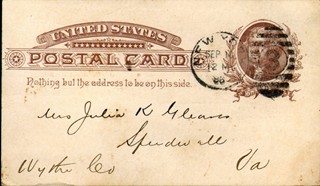 UNITED STATES
POSTAL CARD
Nothing but the address to be on this side.
NEW
SEP
12
86
Mrs Julia K Gleaves
Speedwell
Wythe Co Va